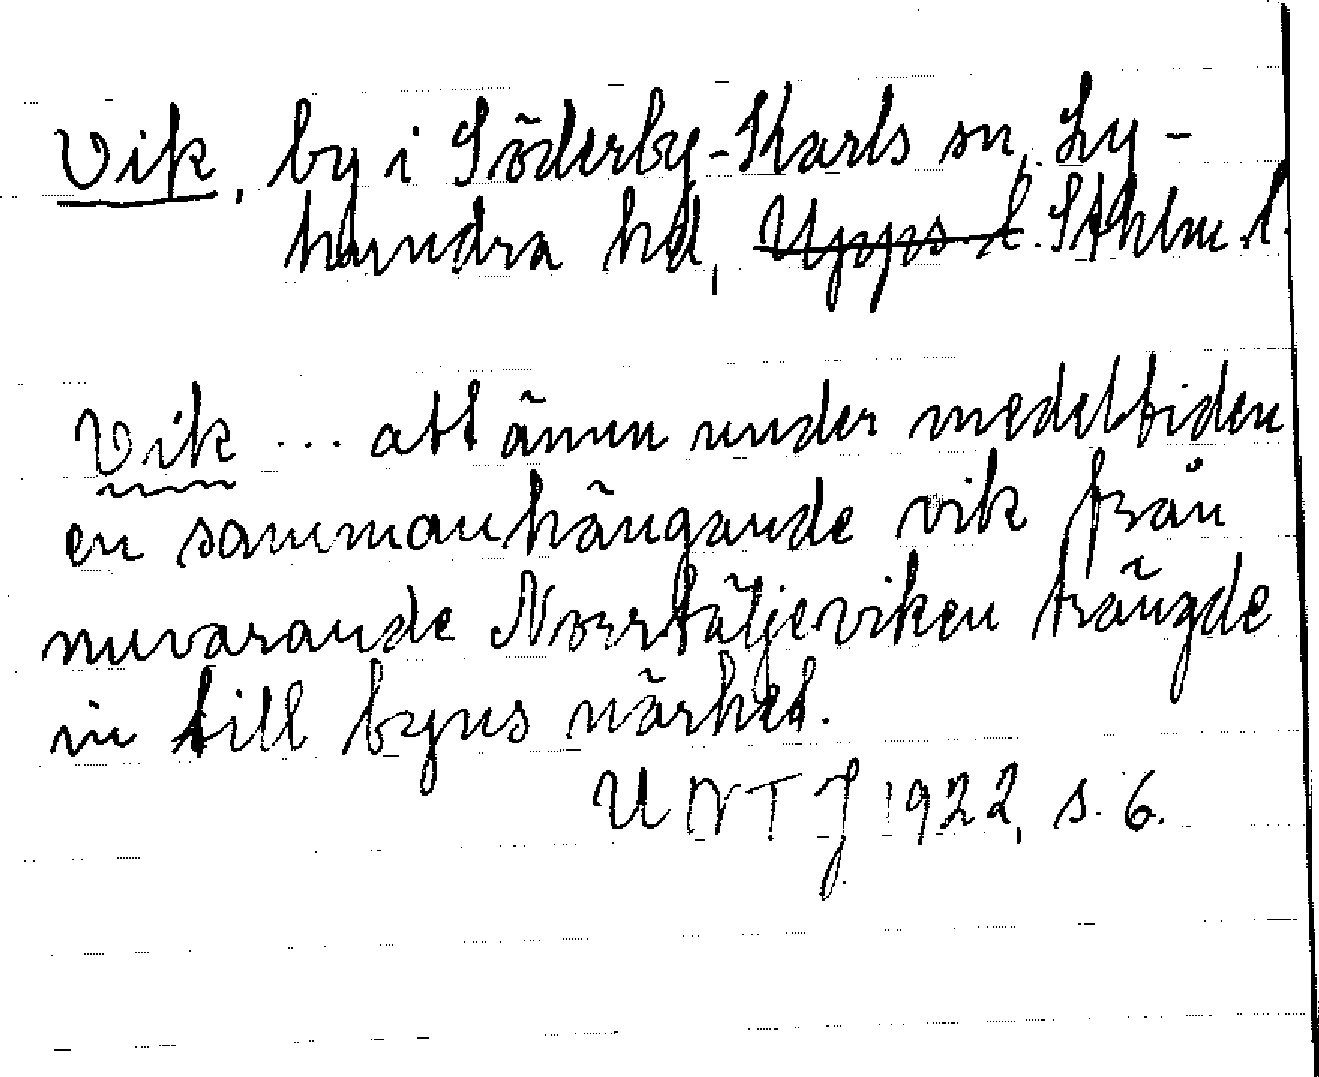 Vik, by i Söderby-Karls sn, Ly-
hundra hd, Upps. l. Sthlm. l.
Vik ... att ännu under medeltiden
en sammanhängande vik från
nuvarande Norrtäljeviken trängde
in till byns närhet.
UNTJ 1922, s. 6.